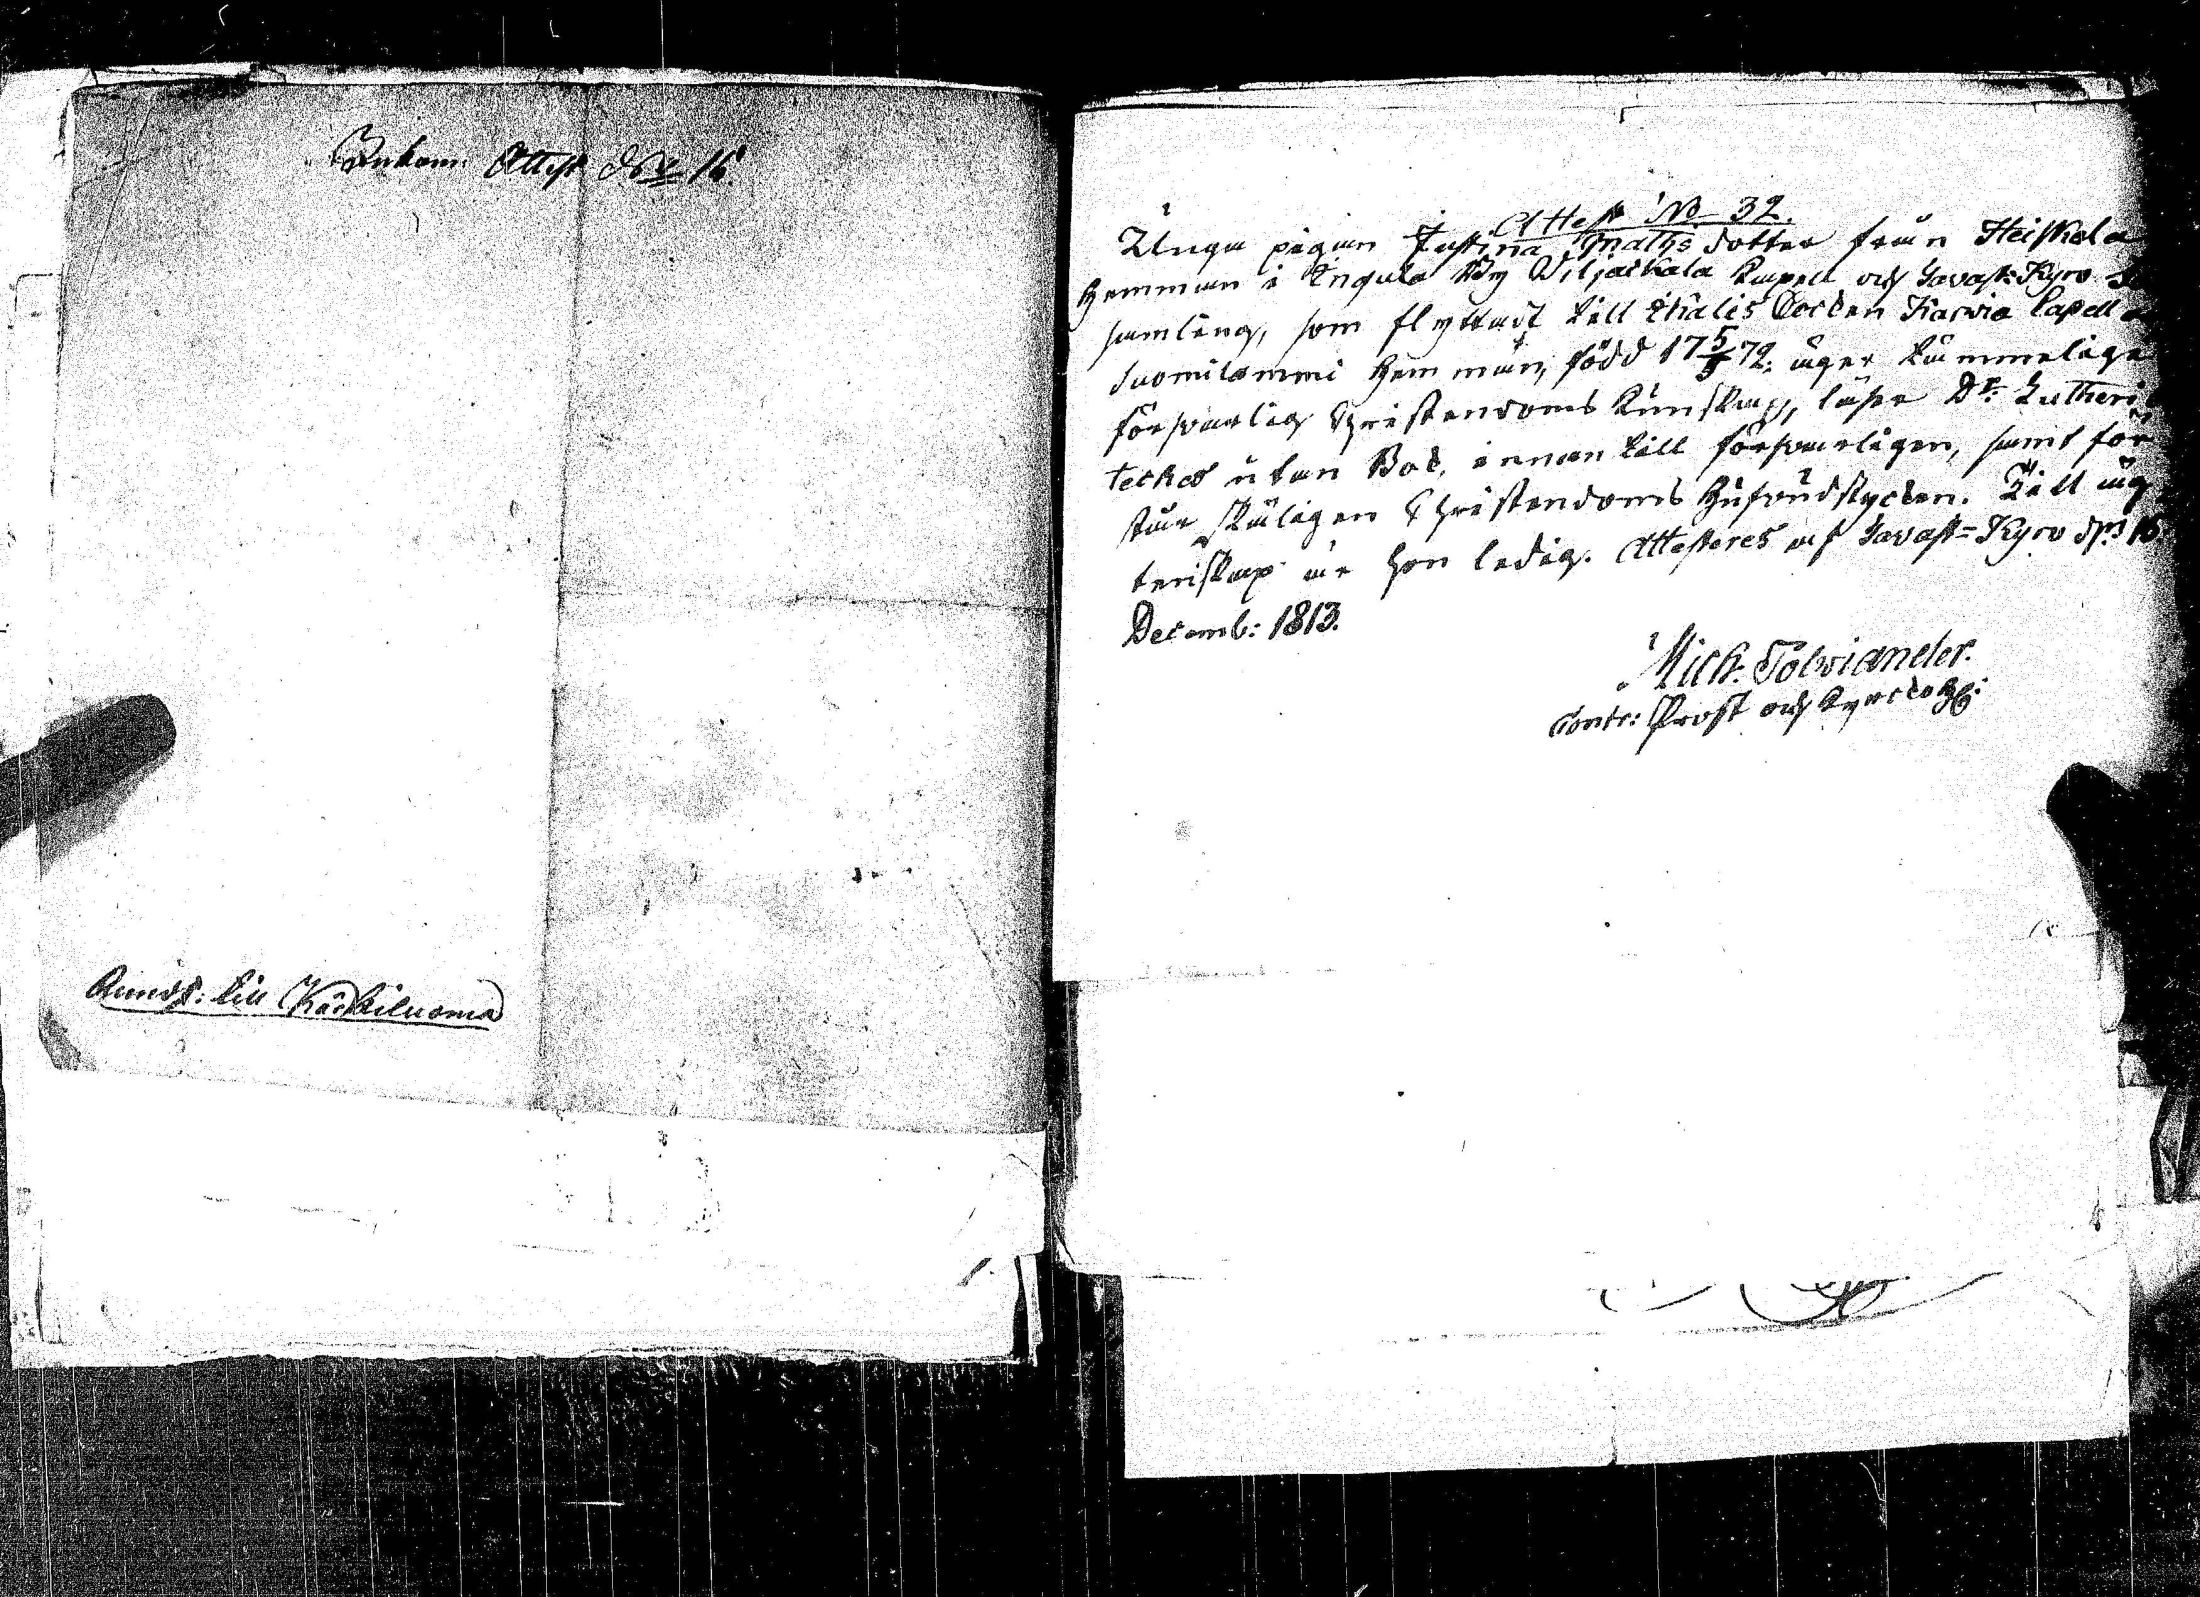 Inkom: Attest No 16.
Annot: till Karhiluoma
Attest No 32.
Unga pigan Justina Maths dotter från Heiskala
hemman i Ingula By Wiljackala Kapell och Tavast-Kyro
samling, som flyttadt till Ikalis Socken Karvia Capell
Suomilammi hemman, född 17 5/5 72. äger tämmelige
försvarlig Christendoms kunskap, läser Dr. Lutheri
teches utan Bok, innan till försvarligen, samt för
står skäligen Christendoms hufvudstycken. Till äg
tenskap är hon ledig. Attesteres af Tavast-Kyro d. 16.
Decemb: 1813.
Mich. Tolviander.
Contr: Prost och Kyrckoh: